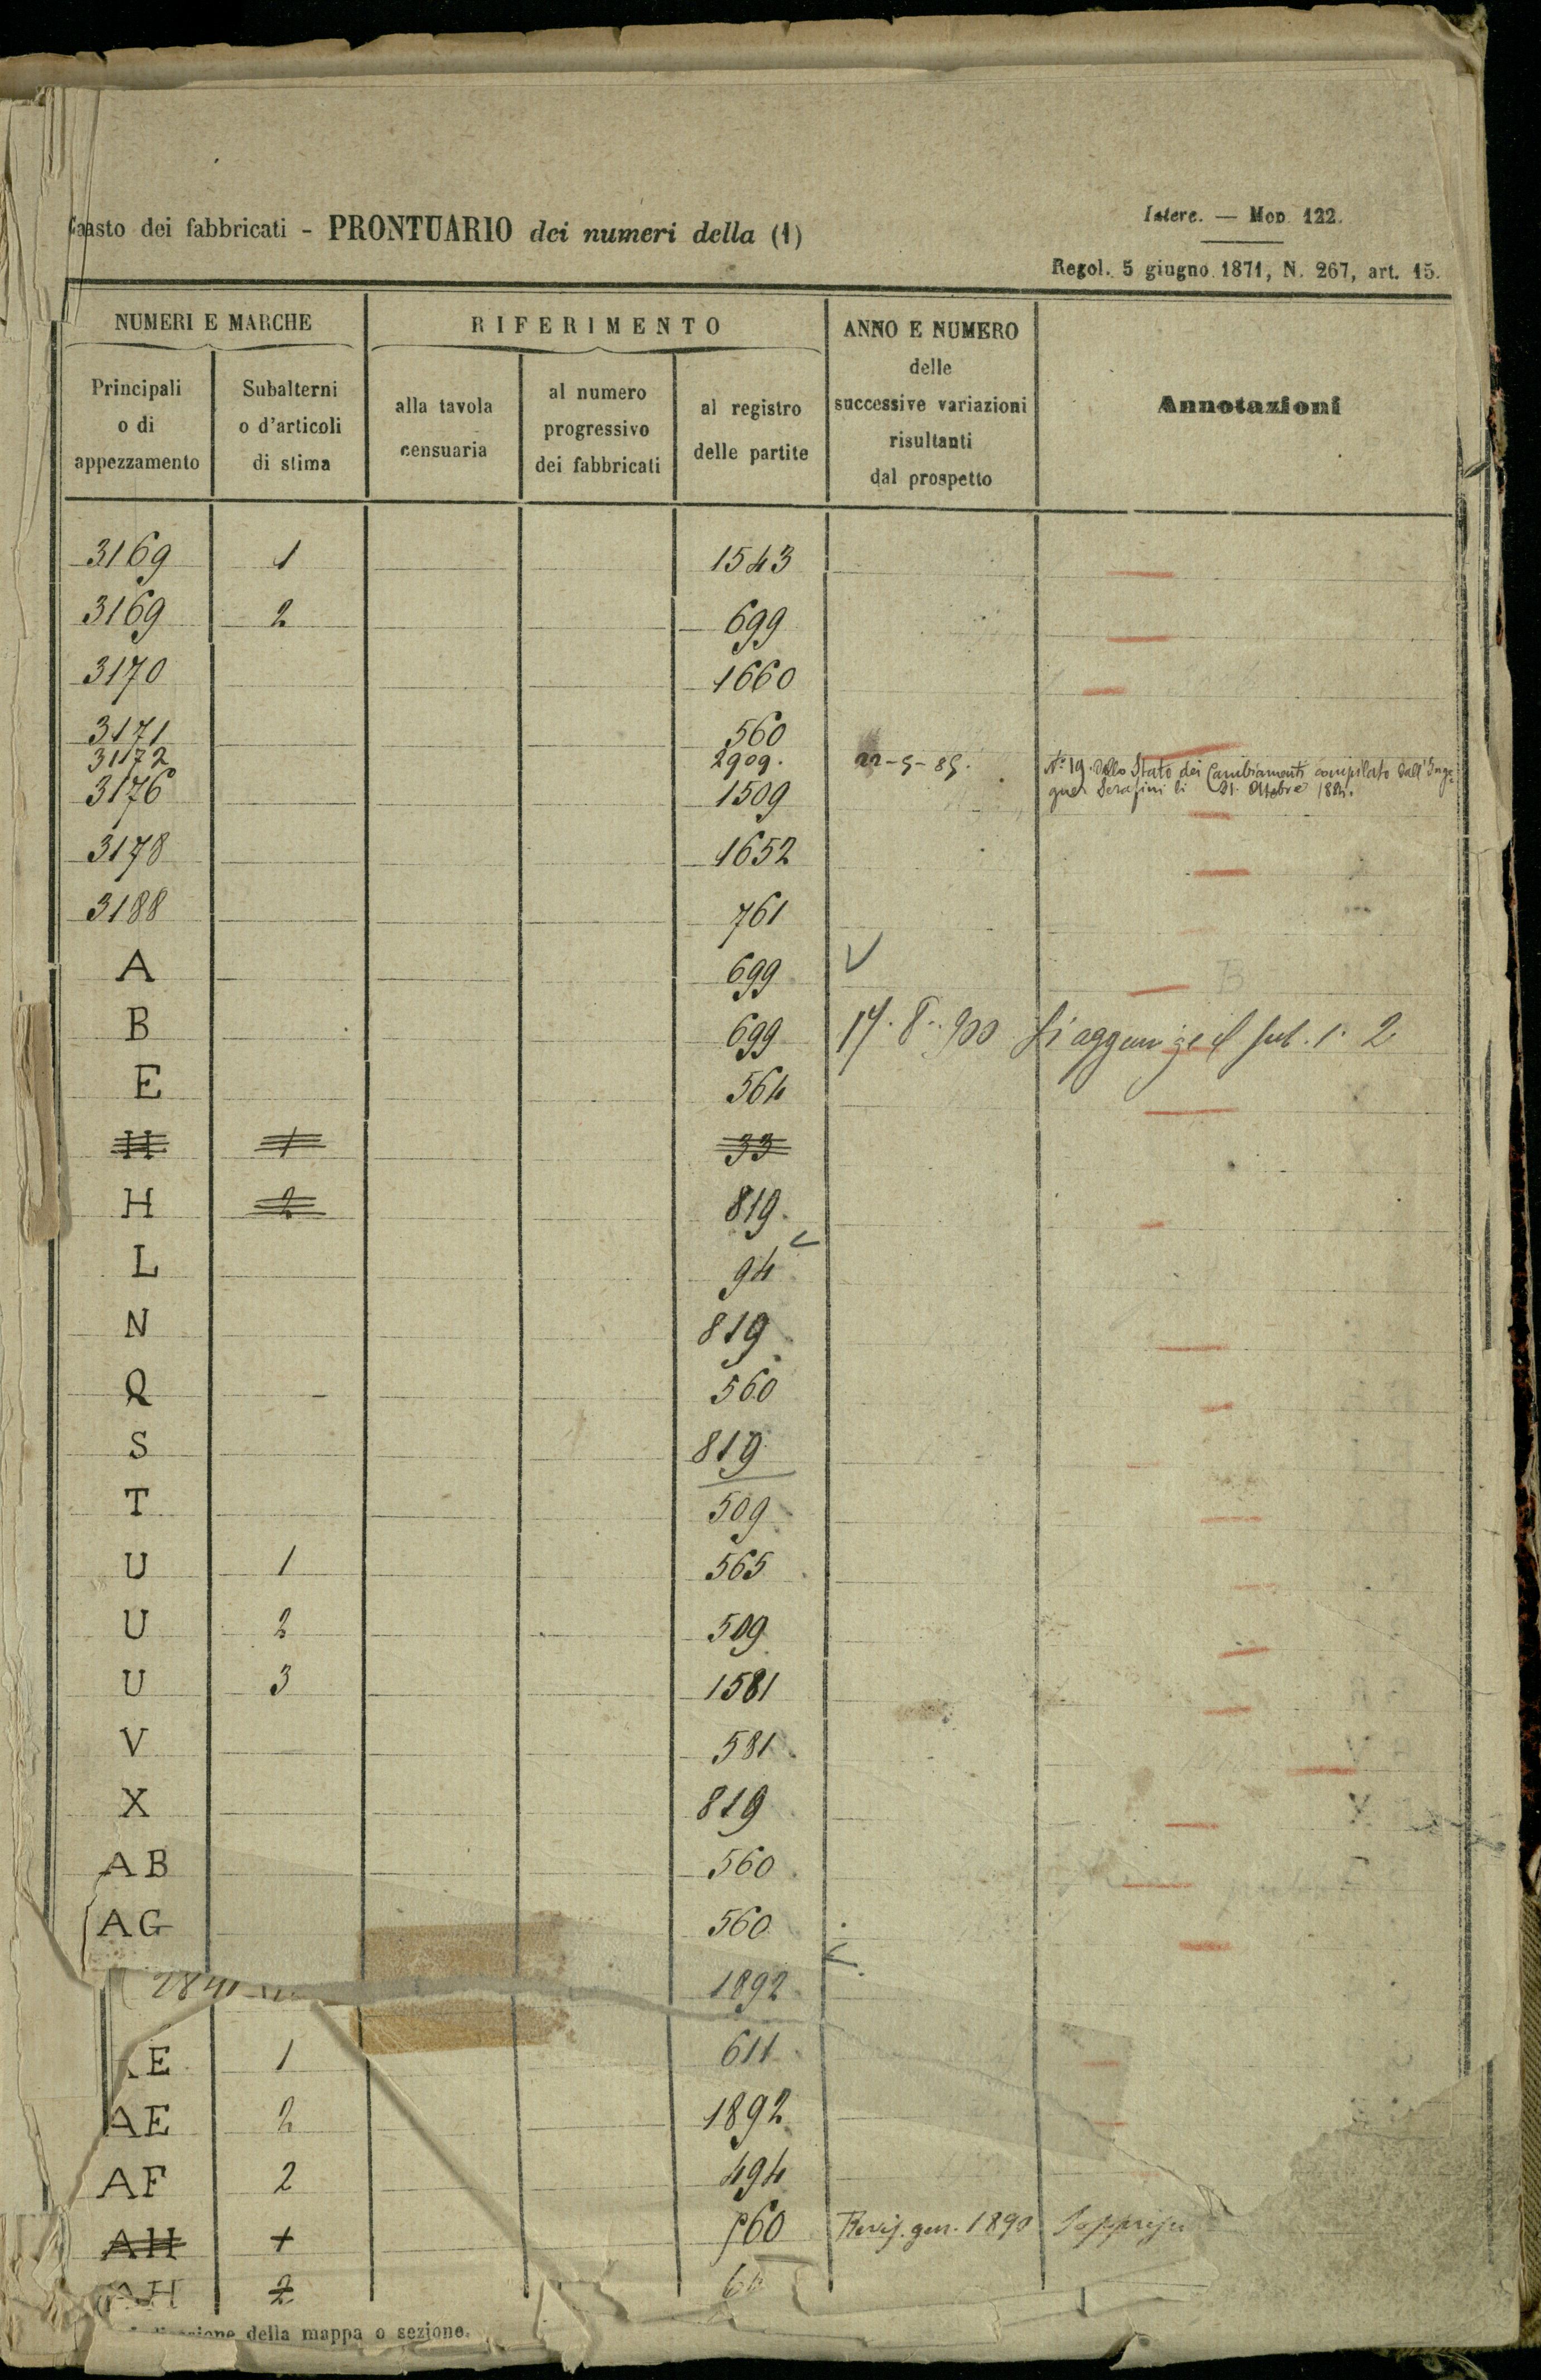 Catasto dei fabbricati - PRONTUARIO dei numeri della (1)
Intere. — Mod. 122.
Regol. 5 giugno 1871, N. 267, art. 15.
NUMERI E MARCHE
RIFERIMENTO
ANNO E NUMERO
delle
successive variazioni
risultanti
dal prospetto
Annotazioni
Principali
o di
appezzamento
Subalterni
o d'articoli
di stima
alla tavola
censuaria
al numero
progressivo
dei fabbricati
al registro
delle partite
3169 1 1543
3169 2 699
3170 1660
3171 560
3172 2909. 22-5-85. N.º 19 dello Stato dei Cambiamenti compilato dall'Inge
3176 1509 gner Serafini li 21 Ottobre 1884.
3178 1652
3188 761
A 699
B 699 17.8.900 Si aggiunge il sub. 1. 2
E 564
H 1 33
H 2 819.
L 94
N 819
Q 560
S 819
T 509
U 1 565
U 2 509
U 3 1581
V 581
X 819
AB 560
AG 560
1892
E 1 611
AE 2 1892
AF 2 494
AH 1 560 Revis. gen. 1890
AH 2
della mappa o sezione.